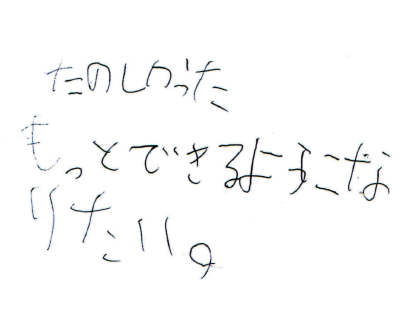 たのしかった
もっとできるようにな
りたい。